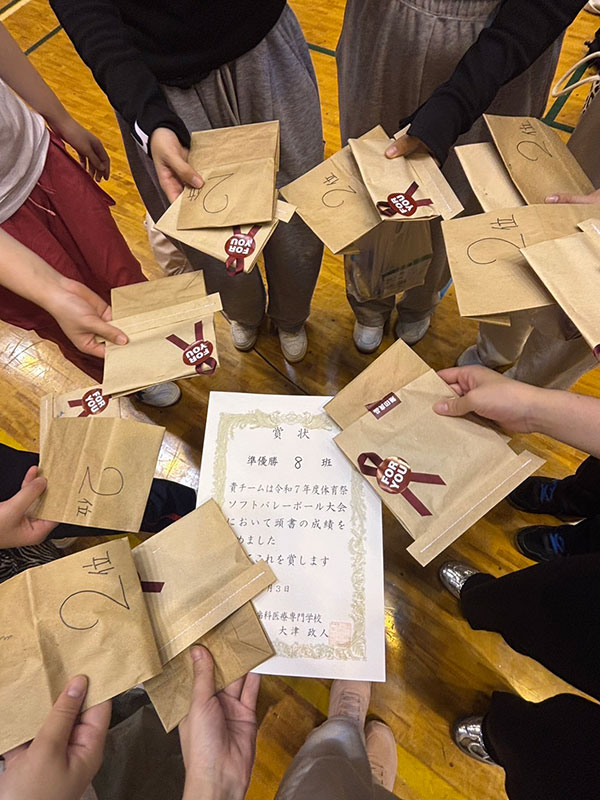 2位
FOR YOU
2位
FOR YOU
2位
2位
FOR YOU
FOR YOU
2位
2位
FOR YOU
賞状
準優勝 8 班
貴チームは令和7年度体育祭
ソフトバレーボール大会
において頭書の成績を
めました
これを賞します
月3日
歯科医療専門学校
大津 政人